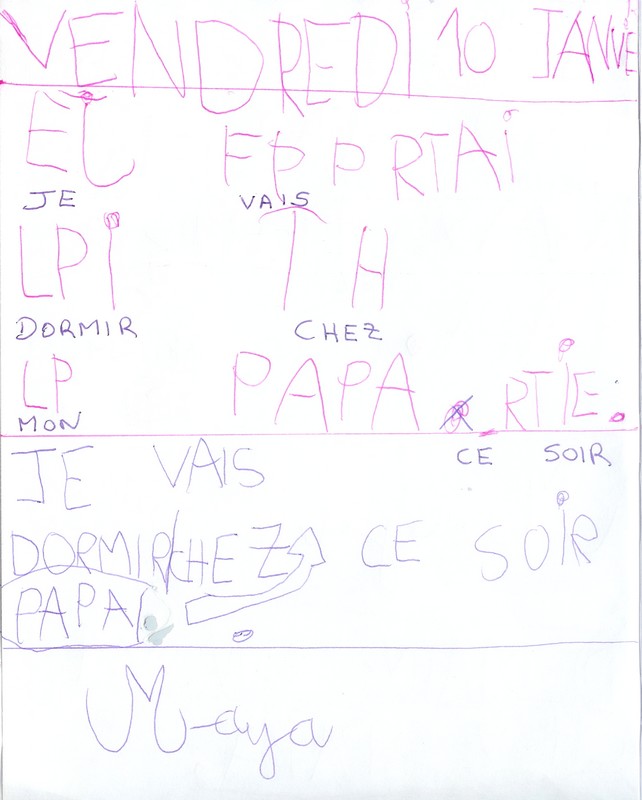 VENDREDI 10 JANVIE
EJ FPPRTAI
JE VAIS
LPI TH
DORMIR CHEZ
LP PAPA RTIE.
MON
CE SOIR
JE VAIS
DORMIR/CHEZ CE SOIR
PAPA
Maya